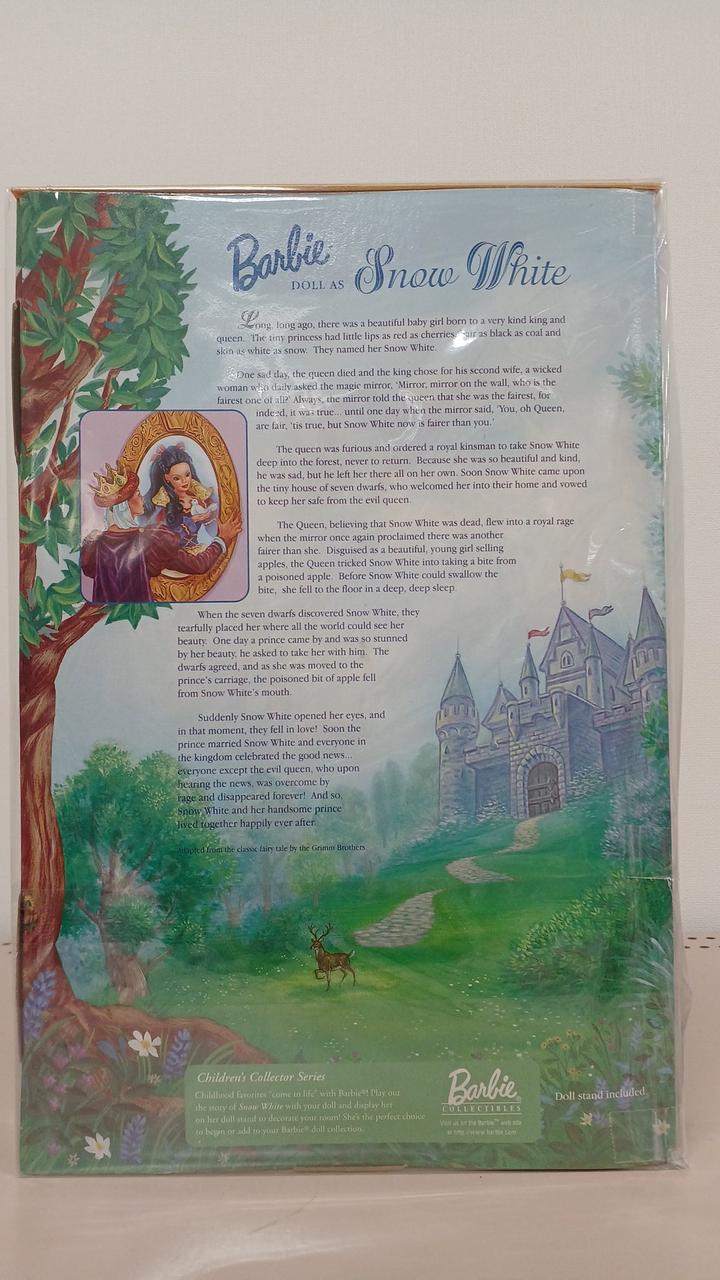 Barbie
DOLL AS Snow White
Long, long ago, there was a beautiful baby girl born to a very kind king and
queen. The tiny princess had little lips as red as cherries, hair as black as coal and
skin as white as snow. They named her Snow White.
One sad day, the queen died and the king chose for his second wife, a wicked
woman who daily asked the magic mirror, 'Mirror, mirror on the wall, who is the
fairest one of all?' Always, the mirror told the queen that she was the fairest, for
indeed, it was true... until one day when the mirror said, 'You, oh Queen,
are fair, 'tis true, but Snow White now is fairer than you.'
The queen was furious and ordered a royal kinsman to take Snow White
deep into the forest, never to return. Because she was so beautiful and kind,
he was sad, but he left her there all on her own. Soon Snow White came upon
the tiny house of seven dwarfs, who welcomed her into their home and vowed
to keep her safe from the evil queen.
The Queen, believing that Snow White was dead, flew into a royal rage
when the mirror once again proclaimed there was another
fairer than she. Disguised as a beautiful, young girl selling
apples, the Queen tricked Snow White into taking a bite from
a poisoned apple. Before Snow White could swallow the
bite, she fell to the floor in a deep, deep sleep.
When the seven dwarfs discovered Snow White, they
tearfully placed her where all the world could see her
beauty. One day a prince came by and was so stunned
by her beauty, he asked to take her with him. The
dwarfs agreed, and as she was moved to the
prince's carriage, the poisoned bit of apple fell
from Snow White's mouth.
Suddenly Snow White opened her eyes, and
in that moment, they fell in love! Soon the
prince married Snow White and everyone in
the kingdom celebrated the good news...
everyone except the evil queen, who upon
hearing the news, was overcome by
rage and disappeared forever! And so,
Snow White and her handsome prince
lived together happily ever after.
Adapted from the classic fairy tale by the Grimm Brothers
Children's Collector Series
Childhood favorites "come to life" with Barbie®! Play out
the story of Snow White with your doll and display her
on her doll stand to decorate your room! She's the perfect choice
to begin or add to your Barbie® doll collection.
Barbie
COLLECTIBLES
Visit us on the Barbie™ web site
at http://www.barbie.com
Doll stand included.